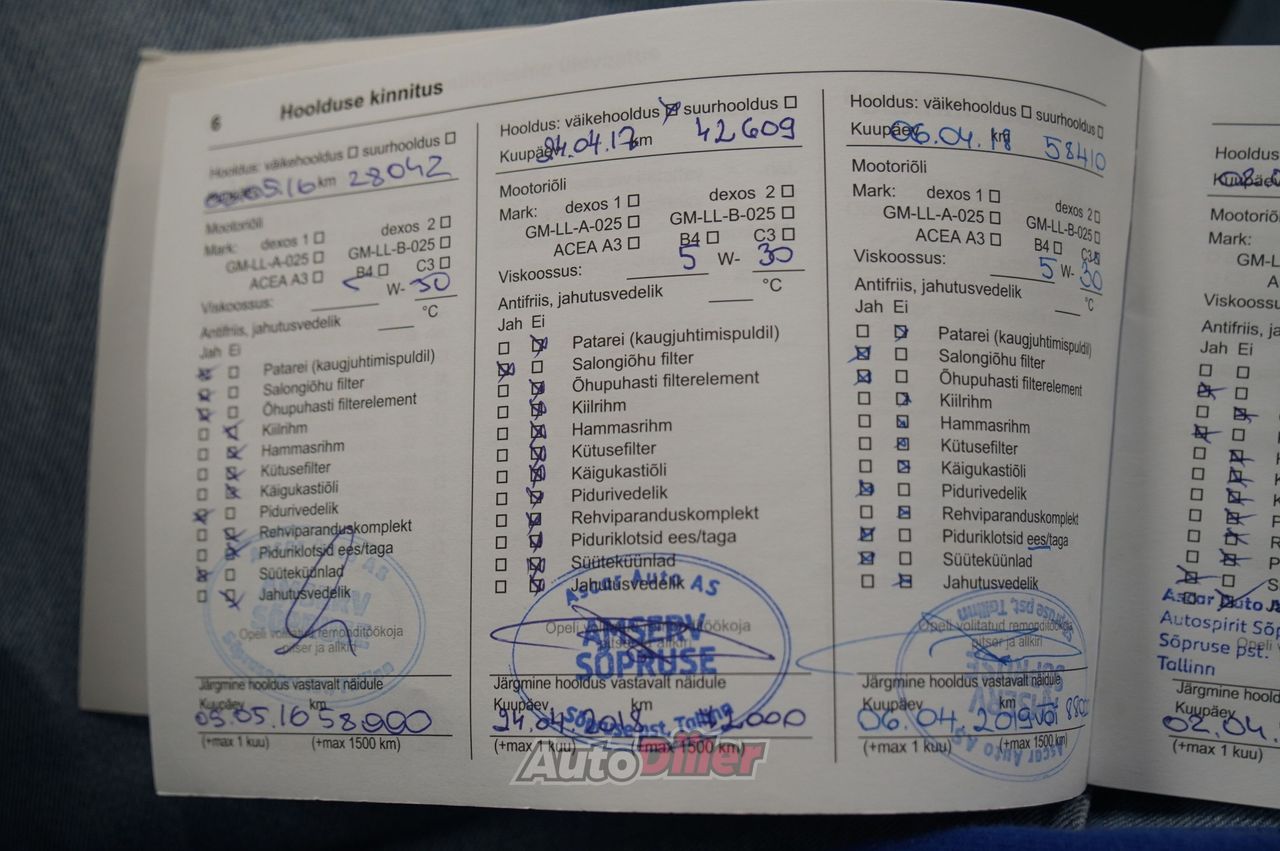 6
Hoolduse kinnitus
Hooldus: väikehooldus suurhooldus
05.16 km 28042
Mootoriõli
Mark: dexos 1 dexos 2
GM-LL-A-025 GM-LL-B-025
ACEA A3 B4 C3
Viskoossus: W- 30
Antifriis, jahutusvedelik °C
Jah Ei
Patarei (kaugjuhtimispuldil)
Salongiõhu filter
Õhupuhasti filterelement
Kiilrihm
Hammasrihm
Kütusefilter
Käigukastiõli
Pidurivedelik
Rehviparanduskomplekt
Piduriklotsid ees/taga
Süüteküünlad
Jahutusvedelik
AMSERV
SÕPRUSE
Opeli volitatud remonditöökoja
pitser ja allkiri
Järgmine hooldus vastavalt näidule
Kuupäev km
05.05.16 58000
(+max 1 kuu) (+max 1500 km)
Hooldus: väikehooldus suurhooldus
Kuupäev 04.17 km 42609
Mootoriõli
Mark: dexos 1 dexos 2
GM-LL-A-025 GM-LL-B-025
ACEA A3 B4 C3
Viskoossus: 5 W- 30
Antifriis, jahutusvedelik °C
Jah Ei
Patarei (kaugjuhtimispuldil)
Salongiõhu filter
Õhupuhasti filterelement
Kiilrihm
Hammasrihm
Kütusefilter
Käigukastiõli
Pidurivedelik
Rehviparanduskomplekt
Piduriklotsid ees/taga
Süüteküünlad
Jahutusvedelik
Ascar Auto AS
AMSERV
SÕPRUSE
Sõpruse pst, Tallinn
Opeli volitatud remonditöökoja
Järgmine hooldus vastavalt näidule
Kuupäev km
04.2018
(+max 1 kuu) (+max 1500 km)
Hooldus: väikehooldus suurhooldus
Kuupäev 06.04.18 km 58410
Mootoriõli
Mark: dexos 1 dexos 2
GM-LL-A-025 GM-LL-B-025
ACEA A3 B4 C3
Viskoossus: 5 W- 30
Antifriis, jahutusvedelik °C
Jah Ei
Patarei (kaugjuhtimispuldil)
Salongiõhu filter
Õhupuhasti filterelement
Kiilrihm
Hammasrihm
Kütusefilter
Käigukastiõli
Pidurivedelik
Rehviparanduskomplekt
Piduriklotsid ees/taga
Süüteküünlad
Jahutusvedelik
Sõpruse pst, Tallinn
Opeli volitatud remonditöökoja
pitser ja allkiri
SÕPRUSE
AMSERV
Ascar Auto AS
Järgmine hooldus vastavalt näidule
Kuupäev km
06.04.2019 või
(+max 1 kuu) (+max 1500 km)
Hooldus:
Kuupäev
Mootoriõli
Mark:
GM-L
A
Viskoossus:
Antifriis, ja
Jah Ei
Ascar Auto
Autospirit Sõp
Sõpruse pst.
Tallinn
Opeli
Järgmine hooldus
Kuupäev
02.04.
(+max 1 kuu)
AutoDiiler